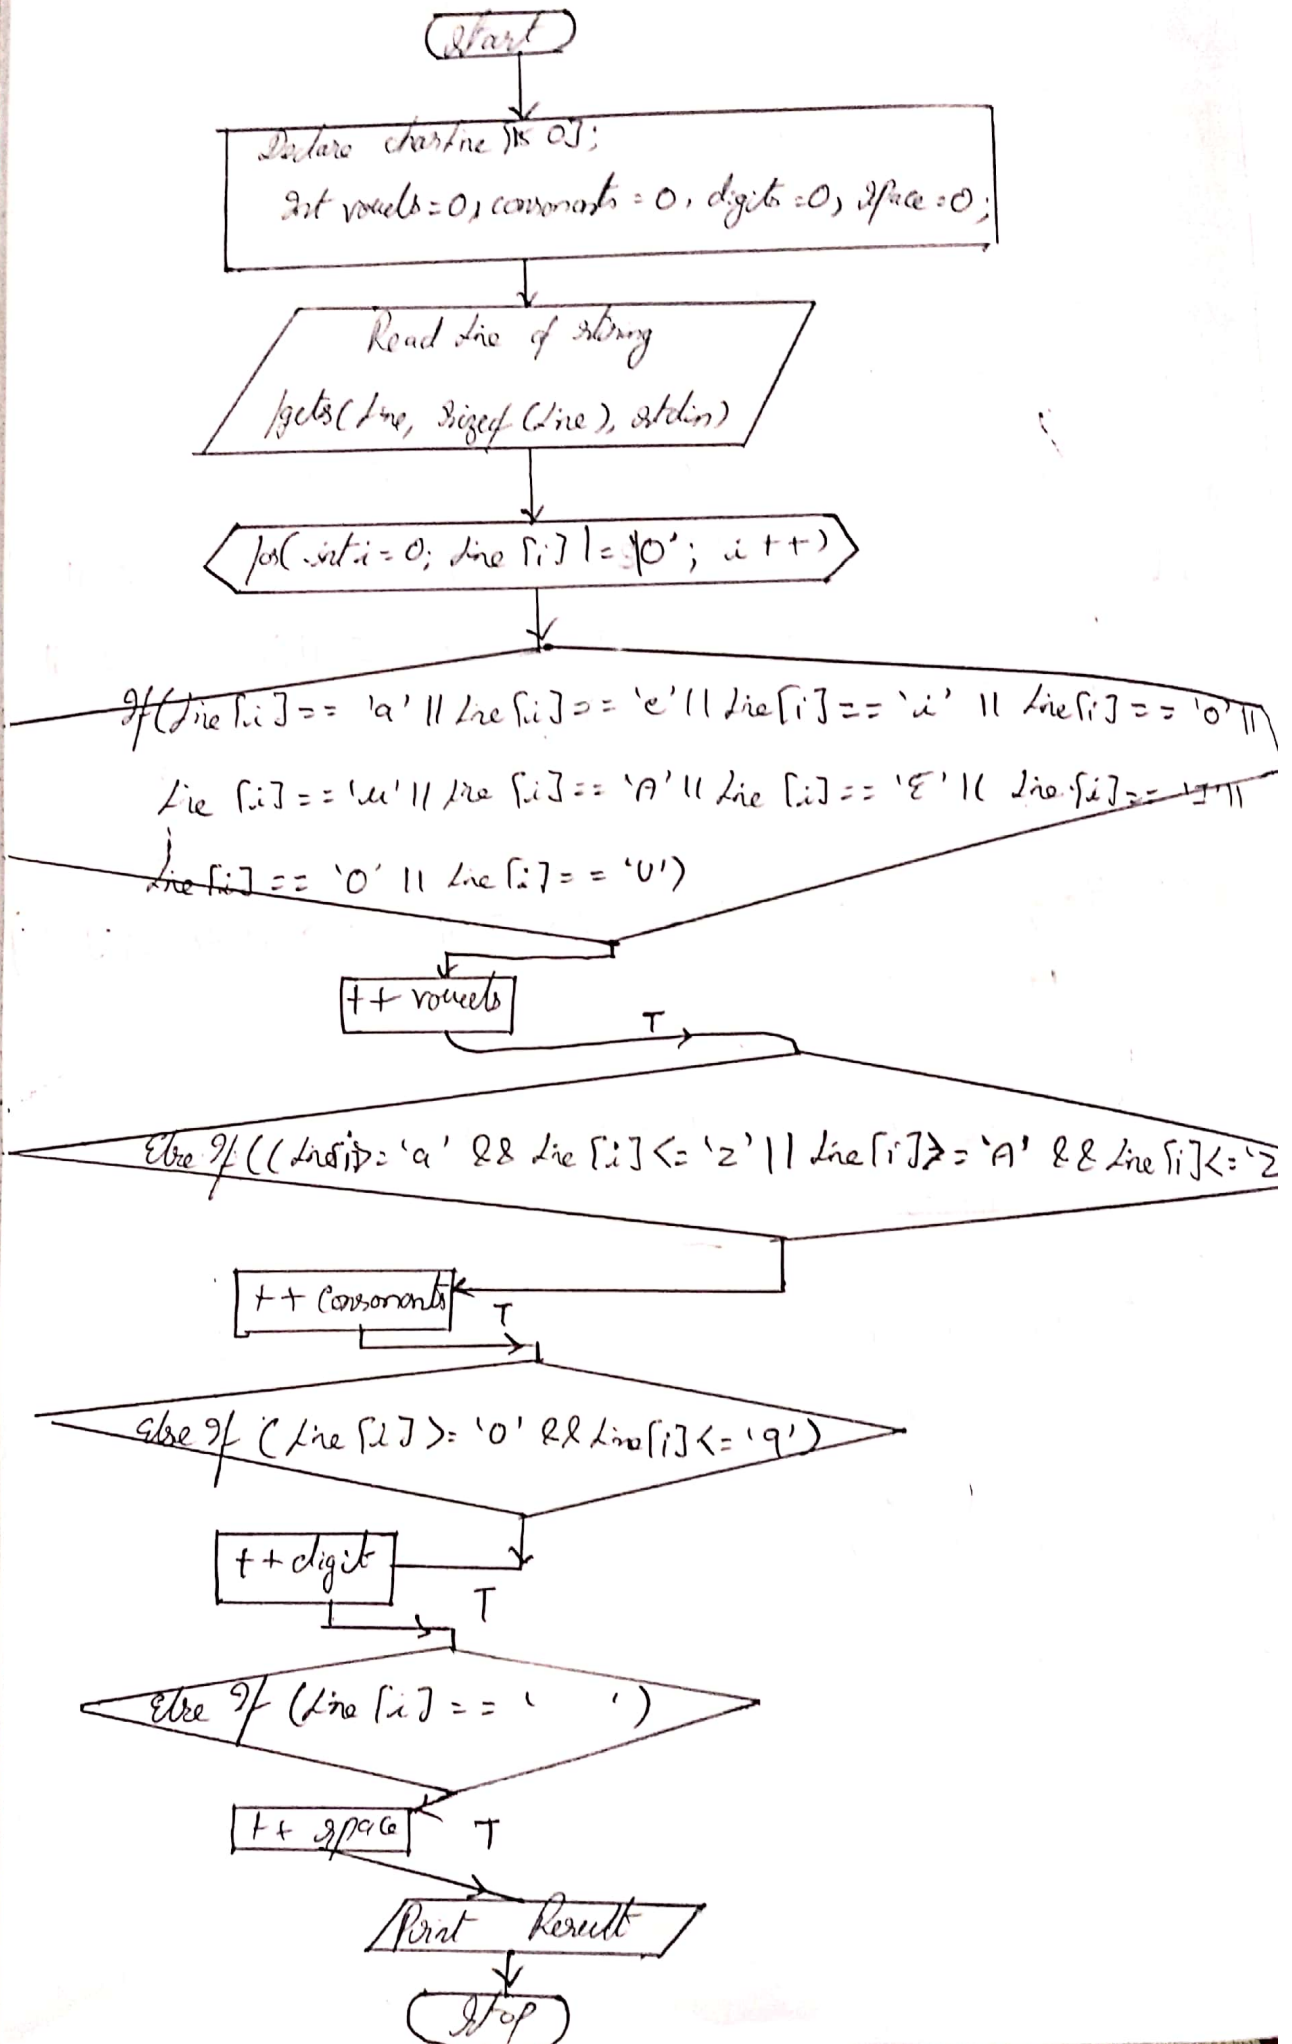 Start
Declare char line [150];
Int vowels = 0, consonants = 0, digits = 0, space = 0;
Read line of string
fgets(line, sizeof (line), stdin)
for( int i = 0; line [i] != '\0'; i ++)
If (line [i] == 'a' || line [i] == 'e' || line [i] == 'i' || line [i] == 'o' ||
line [i] == 'u' || line [i] == 'A' || line [i] == 'E' || line [i] == 'I' ||
line [i] == 'O' || line [i] == 'U')
++ vowels
T
Else If ((line[i]>= 'a' && line [i] <= 'z' || line [i] >= 'A' && line [i] <= 'Z
++ Consonants
T
Else If (line [i] >= '0' && line [i] <= '9')
++ digit
T
Else If (line [i] == ' ')
++ space
T
Print Result
Stop